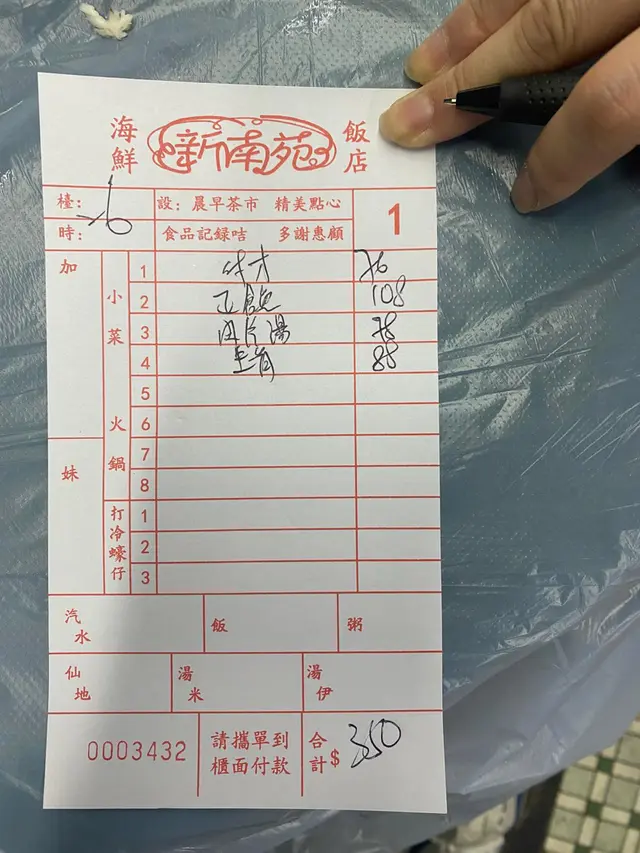 海鮮 新南苑 飯店
檯: 26 設: 晨早茶市 精美點心 1
時: 食品記録咭 多謝惠顧
加 小菜 火鍋
1 76
2 108
3 湯 78
4 88
5
6
妹 7
8
打冷蠔仔 1
2
3
汽水 飯 粥
仙地 湯米 湯伊
0003432 請攜單到櫃面付款 合計$ 350